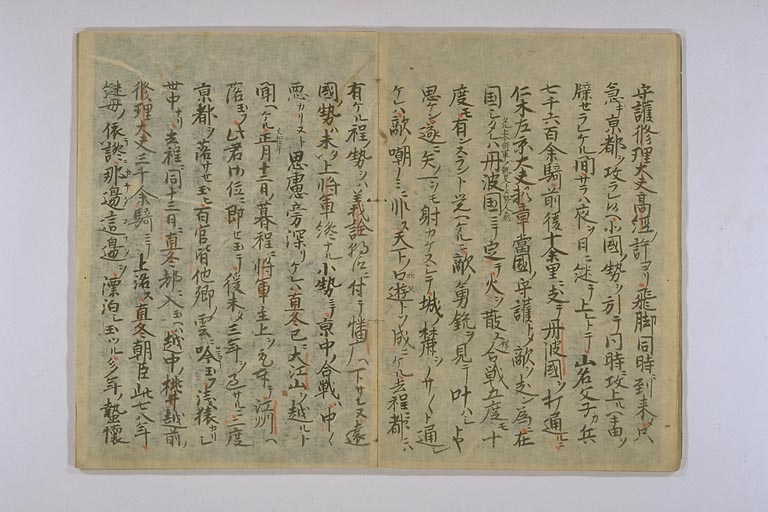 守護修理大夫高経ノ許ヨリ飛脚同時ニ到来シテ
急キ京都ヲ攻ラレハ小國ノ勢ヲ引テ同時ニ攻上ルヘキ由ヲ
牒セラレケル間サラハ夜ヲ日ニ継テ上レトテ山名父子カ兵
七千六百余騎前後十余里ニ支テ丹波國ヲ打通ルニ
仁木左京大夫頼章當國ノ守護トシテ敵ヲ支ン為ニ在
國シタレハ丹波國ニテ定テ火ヲ散ス合戦五度モ十
度モ有ンスラント覚ヘケルニ敵ノ勇鋭ヲ見テ叶ハシトヤ
思ケン遂ニ矢一ヲモ射カケスシテ城ノ麓ヲノサノサト通シ
ケレハ敵ノ嘲ノミニ非ス天下ノ口遊トソ成ニケル去程ニ都ニハ
有ケル程ノ勢ヲハ義詮朝臣ニ付テ幡广ヘ下サレヌ遠
國ノ勢ハ未上ラス将軍纔ナル小勢ニテ京中ノ合戦ハ中々
悪カリヌト思慮旁深リケレハ直冬已ニ大江山ヲ越ルト
聞ヘケル正月十二日ノ暮程ニ将軍主上ヲ取奉テ江州ヘ
落玉フ此君御位ニ即セ玉テ後未三年ヲ過サルニ二度
京都ヲ落サセ玉ヒ百官皆他郷ノ雲ニ吟玉フ浅猿カリシ
世中ナリ去程ニ同十三日ニ直冬都ニ入玉ヘハ越中ノ桃井越前ノ
修理大夫三千余騎ニテ上洛ス直冬朝臣此七八年
継母ノ依讒那邊這邊ニ漂泊シ玉ツルカ多年ノ蟄懐